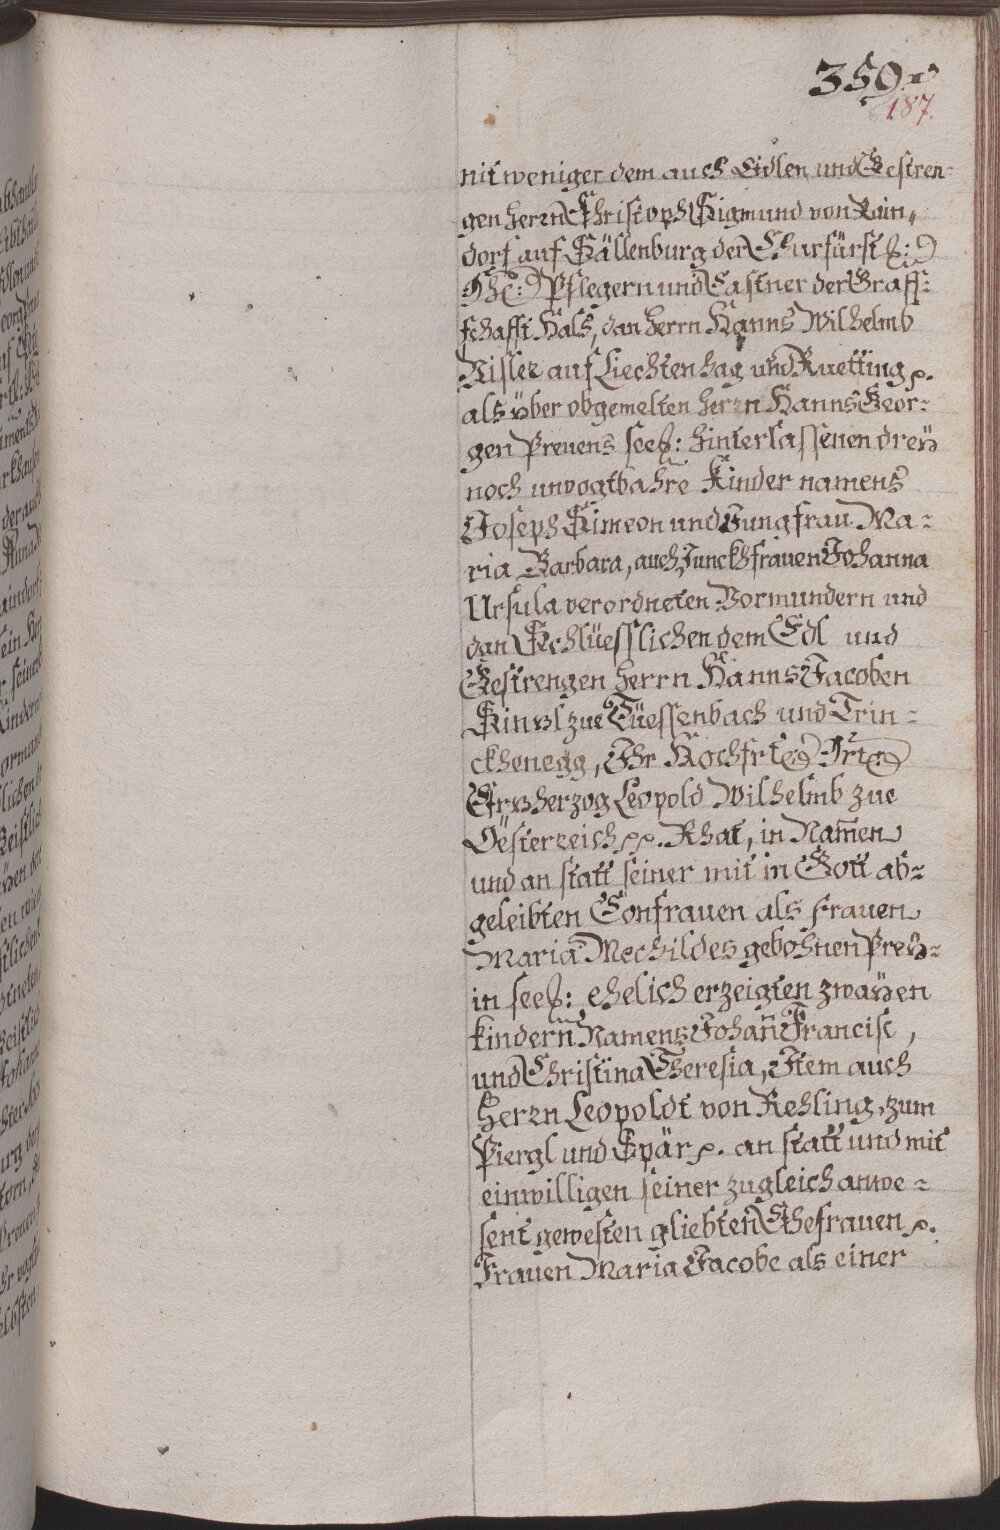 359.
187.
nit weniger dem auch Edlen und Gestren-
gen Herrn Christoph Sigmund von Rain-
dorf auf Hällenburg der Churfürstl:
Pflegern und Castner der Graff-
schafft Hals, dan Herrn Hanns Wilhelmb
auf Liechtenhag und Ruetting
als über obgemelten Herrn Hanns Geor-
gen Preuens seel: hinterlassenen dreÿ
noch unvogtbahre Kinder namens
Joseph Simeon und Jungfrau Ma-
ria Barbara, auch Junckhfrauen Johanna
Ursula verordneten Vormundern und
dan Schlüesslichen dem Edl und
Gestrengen Herrn Hanns Jacoben
Kinzl zue Tüessenbach und Trin-
ckhenegg, Ihr Hochfrt:
Erzherzog Leopold Wilhelmb zue
Oësterreich Rhat, in Namen
und an statt seiner mit in Gott ab-
geleibten Confrauen als frauen
Maria Mechildes gebohnen Preÿ-
in seel: ehelich erzeigten zwaÿen
kindern Namens Johan Francisc,
und Christina Theresia, Item auch
Herrn Leopoldt von Rehling, zum
Piergl und Spär an statt und mit
einwilligen seiner zugleich anwe-
sent gewesten gliebten Ehefrauen
Frauen Maria Jacobe als einer